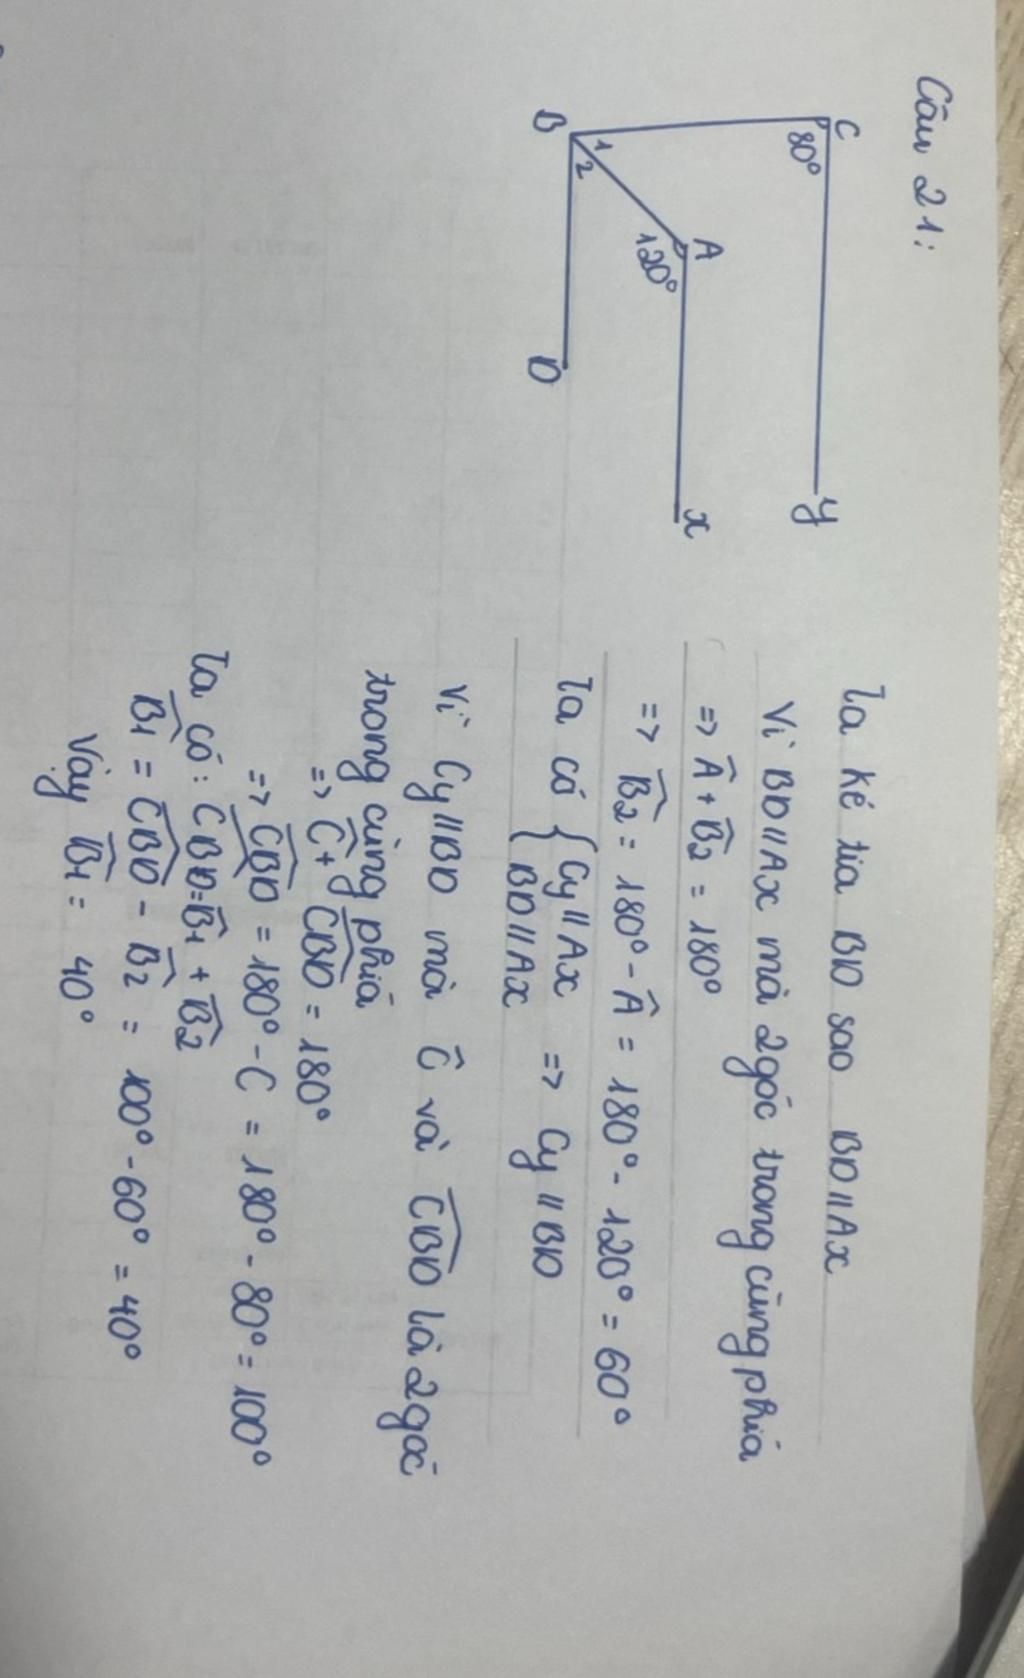 Câu 21:
C
80°
y
A
120°
x
B
1
2
D
Ta kẻ tia BD sao BD // Ax
Vì BD // Ax mà 2 góc trong cùng phía
=> Â + B̂2 = 180°
=> B̂2 = 180° - Â = 180° - 120° = 60°
Ta có { Cy // Ax => Cy // BD
BD // Ax
Vì Cy // BD mà Ĉ và CBD là 2 góc
trong cùng phía
=> Ĉ + CBD = 180°
=> CBD = 180° - C = 180° - 80° = 100°
Ta có: CBD = B̂1 + B̂2
B̂1 = CBD - B̂2 = 100° - 60° = 40°
Vậy B̂1 = 40°